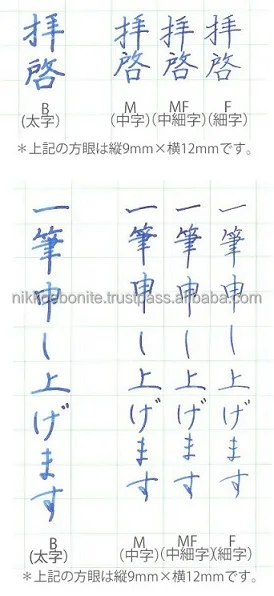 拝啓 拝啓 拝啓 拝啓
B M MF F
(太字) (中字) (中細字) (細字)
＊上記の方眼は縦9mm×横12mmです。
一筆申し上げます 一筆申し上げます 一筆申し上げます 一筆申し上げます
nikkoebonite.trustpass.alibaba.com
B M MF F
(太字) (中字) (中細字) (細字)
＊上記の方眼は縦9mm×横12mmです。